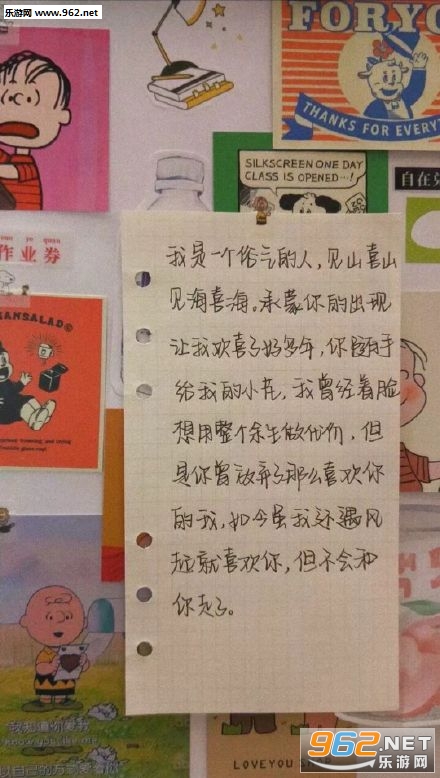 乐游网 www.962.net
FORYO
THANKS FOR EVERYT
SILKSCREEN ONE DAY
CLASS IS OPENED…!
自在
作业券
ANSALAD
我是一个俗气的人，见山喜山
见海喜海。承蒙你的出现
让我欢喜了好多年，你随手
给我的小花，我曾经着脸
想用整个余生做代价，但
是你曾放弃了那么喜欢你
的我，如今虽我还遇风
起就喜欢你，但不会和
你走了。
我知道你爱我
know you like me
以自己的方式爱着你
LOVE YOU
962.NET
乐游网